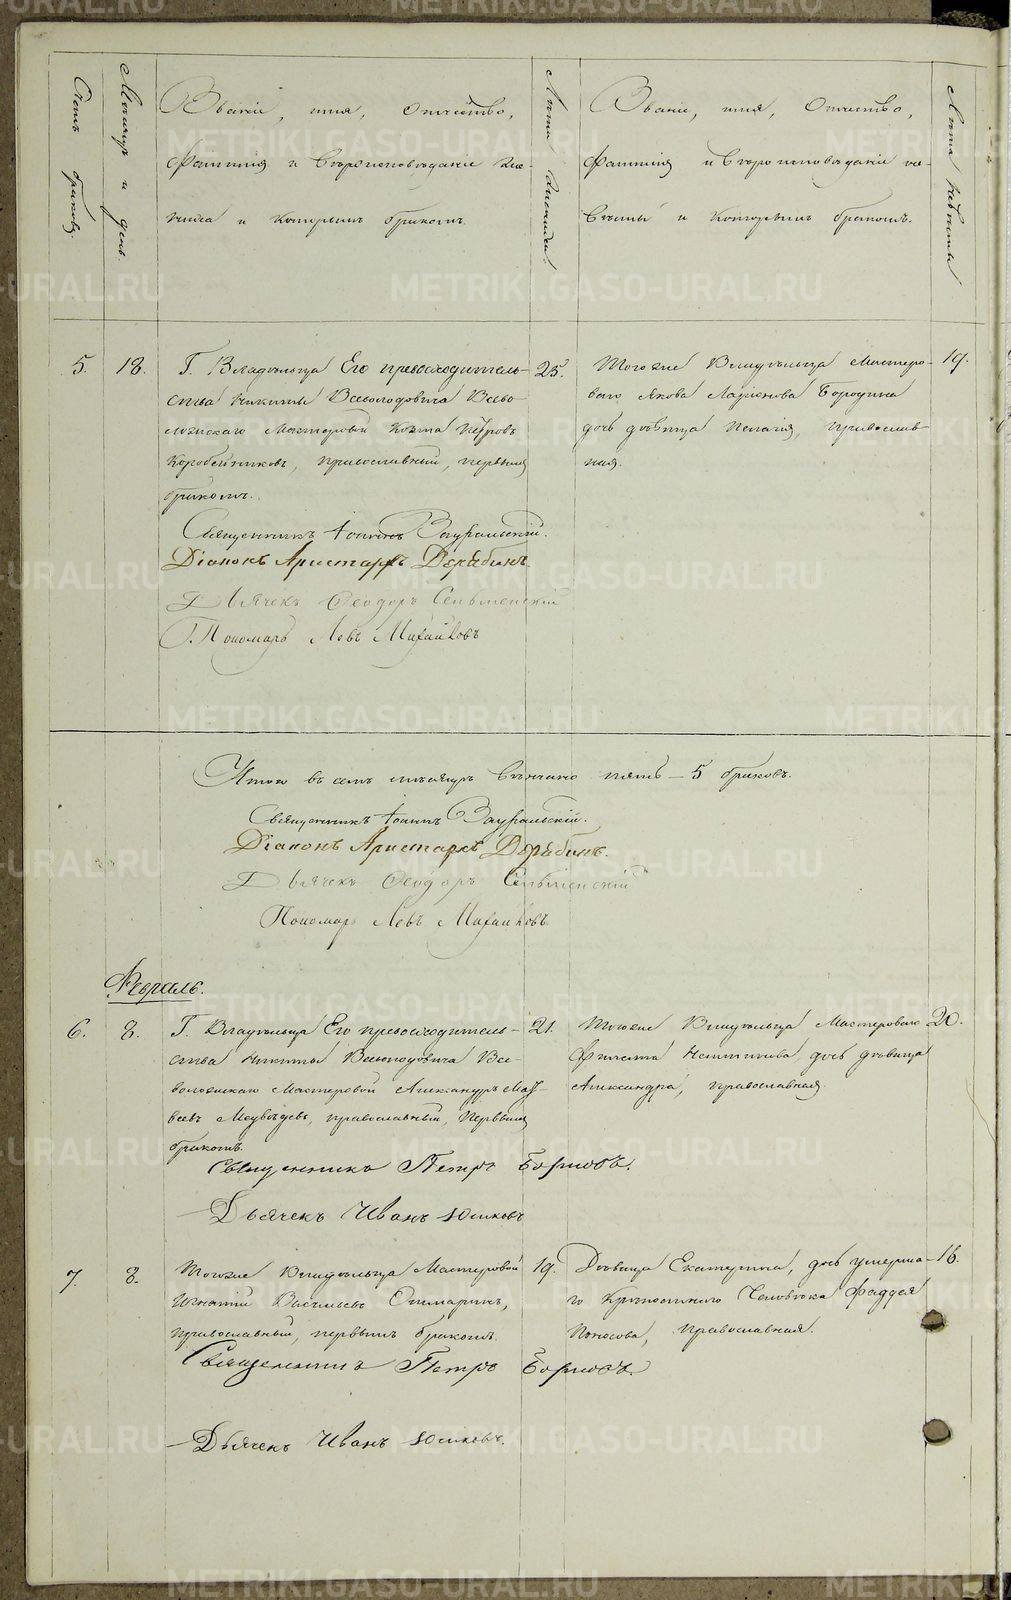 Счетъ браковъ.
Месяцъ и день.
Званіе, имя, отчество,
фамилія и вѣроисповѣданіе же-
ниха и которымъ бракомъ.
Лѣта жениха.
Званіе, имя, отчество,
фамилія и вѣроисповѣданіе не-
вѣсты и которымъ бракомъ.
Лѣта невѣсты
5.
18.
Г. Владѣльца Его превосходитель-
ства Никиты Всеволодовича Всево-
ложскаго Мастеровой Козма Петровъ
Коробейниковъ, православный, первымъ
бракомъ.
25.
Тогоже Владѣльца Мастеро-
ваго Якова Ларионова Бородина
дочь дѣвица Пелагія, православ-
ная.
19.
Священникъ Іоаннъ Зауральскій.
Діаконъ Аристархъ Дерябинъ.
Дьячекъ Ѳеодоръ
П. Пономарь Левъ
Итого въ семъ месяцѣ вѣнчано пять – 5 браковъ.
Священникъ Іоаннъ Зауральскій.
Діаконъ Аристархъ Дерябинъ.
Дьячекъ Ѳеодоръ
Пономарь Левъ
Февраль.
6.
8.
Г. Владѣльца Его превосходитель-
ства Никиты Всеволодовича Все-
воложскаго Мастеровой Александръ Мат-
веевъ Медвѣдевъ, православный, первымъ
бракомъ.
21.
Тогоже Владѣльца Мастероваго
дочь дѣвица
Александра, православная
20.
Священникъ Петръ
Дьячекъ Иванъ
7.
8.
Тогоже Владѣльца Мастеровой
Игнатій Васильевъ
православный, первымъ бракомъ.
19.
Дѣвица Екатерина, дочь умерша-
го Крѣпостнаго Человѣка Фаддея
православная.
16.
Священникъ Петръ
Дьячекъ Иванъ
METRIKI.GASO-URAL.RU